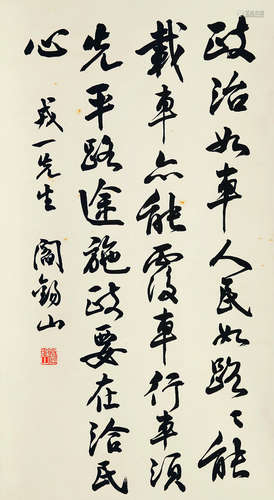 政治如車人民如路々能
載車亦能覆車行車須
先平路途施政要在洽民
心
戎一先生 閻錫山